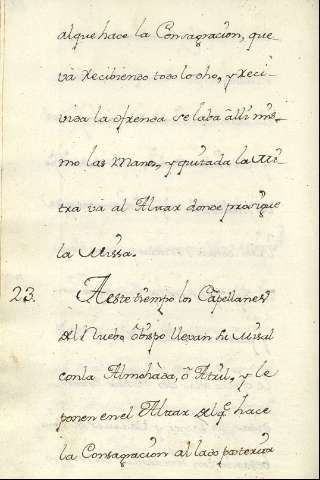 al que hace la Consagracion, que
vá recibiendo todo lo oho, y reci-
vida la ofrenda se laba alli mis-
mo las manos, y quitada la Mi-
tra vá al Altar donde prosigue
la Missa.
23. A este tiempo los Capellanes
del Nuebo óbispo llevan su Misal
con la Almoháda, ó Atril, y le
ponen en el Altar del q.e hace
la Consagracion al lado posterior